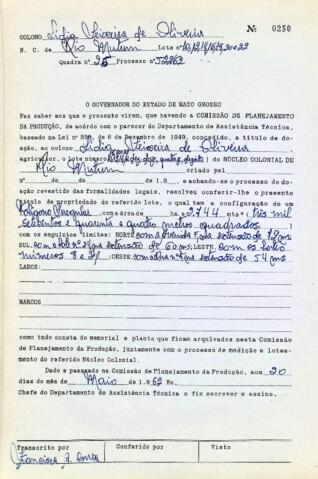 Nº 0250
COLONO Lídia Teixeira de Oliveira
N. C. de Rio Mutum Lote nº 10,12,14,16,18,20 e 22
Quadra nº 25 Processo nº
O GOVERNADOR DO ESTADO DE MATO GROSSO
Faz saber aos que o presente virem, que havendo a COMISSÃO DE PLANEJAMENTO
DA PRODUÇÃO, de acôrdo com o parecer do Departamento de Assistência Técnica,
baseado na Lei nº 336, de 6 de Dezembro de 1949, concedido, a título de doa-
ção, ao colono Lídia Teixeira de Oliveira
agricultor, o lote número do NÚCLEO COLONIAL DE
Rio Mutum criado pel
nº do de de 19 e achando-se o processo de do-
ação revestido das formalidades legais, resolveu conferir-lhe o presente
título de propriedade do referido lote, o qual tem a configuração de um
Polígono Irregular com a área de ha. e 3.744 mts (três mil
setecentos e quarenta e quatro metros quadrados)
com os seguintes limites: NORTE com a Avenida na extensão de
SUL, com na extensão de 60 ms; LESTE, com os lotes
números 8 e 24; OESTE, com na extensão de 54 ms
LADOS:
MARCOS
como tudo consta do memorial e planta que ficam arquivados nesta Comissão
de Planejamento da Produção, juntamente com o processo de medição e lotea-
mento do referido Núcleo Colonial.
Dado e passado na Comissão de Planejamento da Produção, aos 20
dias do mês de Maio de 1.962 Eu,
Chefe do Departamento de Assistência Técnica o fiz escrever e assino.
Transcrito por Conferido por Visto
Francisca